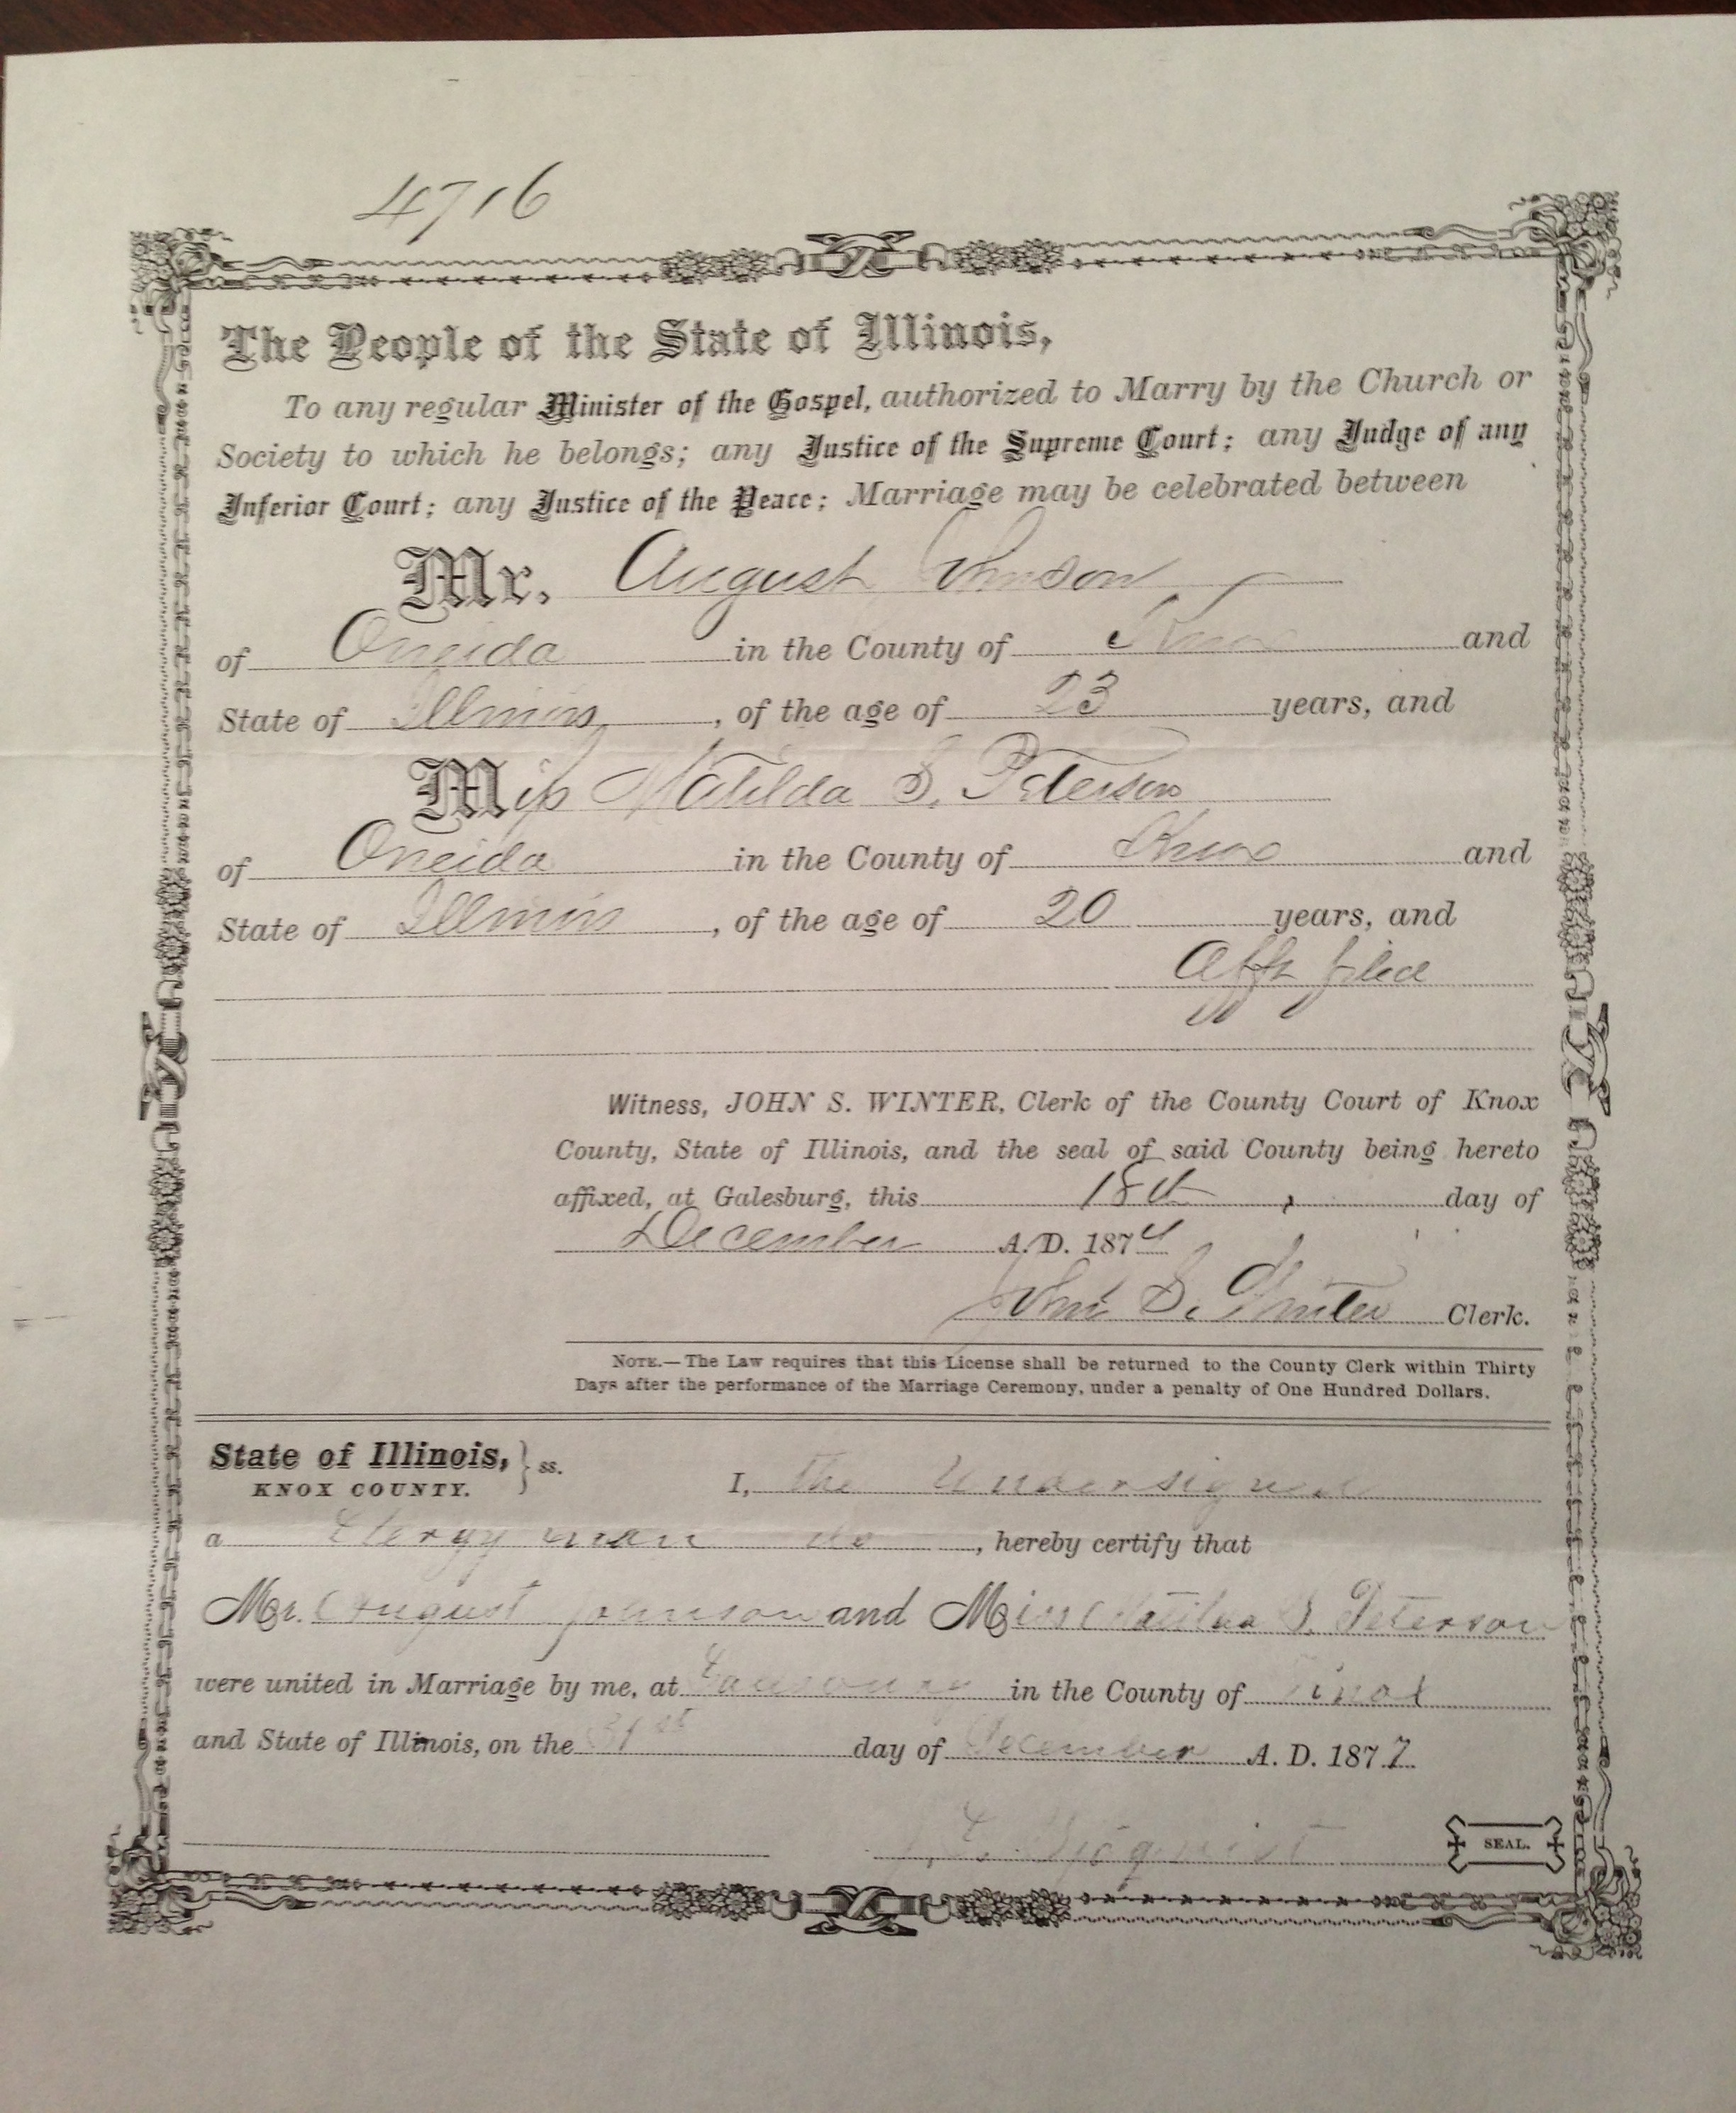 4716
The People of the State of Illinois,
To any regular Minister of the Gospel, authorized to Marry by the Church or
Society to which he belongs; any Justice of the Supreme Court; any Judge of any
Inferior Court; any Justice of the Peace; Marriage may be celebrated between
Mr. August Johnson
of Oneida in the County of Knox and
State of Illinois, of the age of 23 years, and
Miss Matilda S. Peterson
of Oneida in the County of Knox and
State of Illinois, of the age of 20 years, and
Afft filed
Witness, JOHN S. WINTER, Clerk of the County Court of Knox
County, State of Illinois, and the seal of said County being hereto
affixed, at Galesburg, this 18th day of
December A. D. 187
John S. Winter Clerk.
NOTE.—The Law requires that this License shall be returned to the County Clerk within Thirty
Days after the performance of the Marriage Ceremony, under a penalty of One Hundred Dollars.
State of Illinois, } ss.
KNOX COUNTY.
I, the undersigned
a Clergyman do, hereby certify that
Mr. August Johnson and Miss Matilda S. Peterson
were united in Marriage by me, at in the County of
and State of Illinois, on the 31st day of December A. D. 1877.
Sjöquist
SEAL.